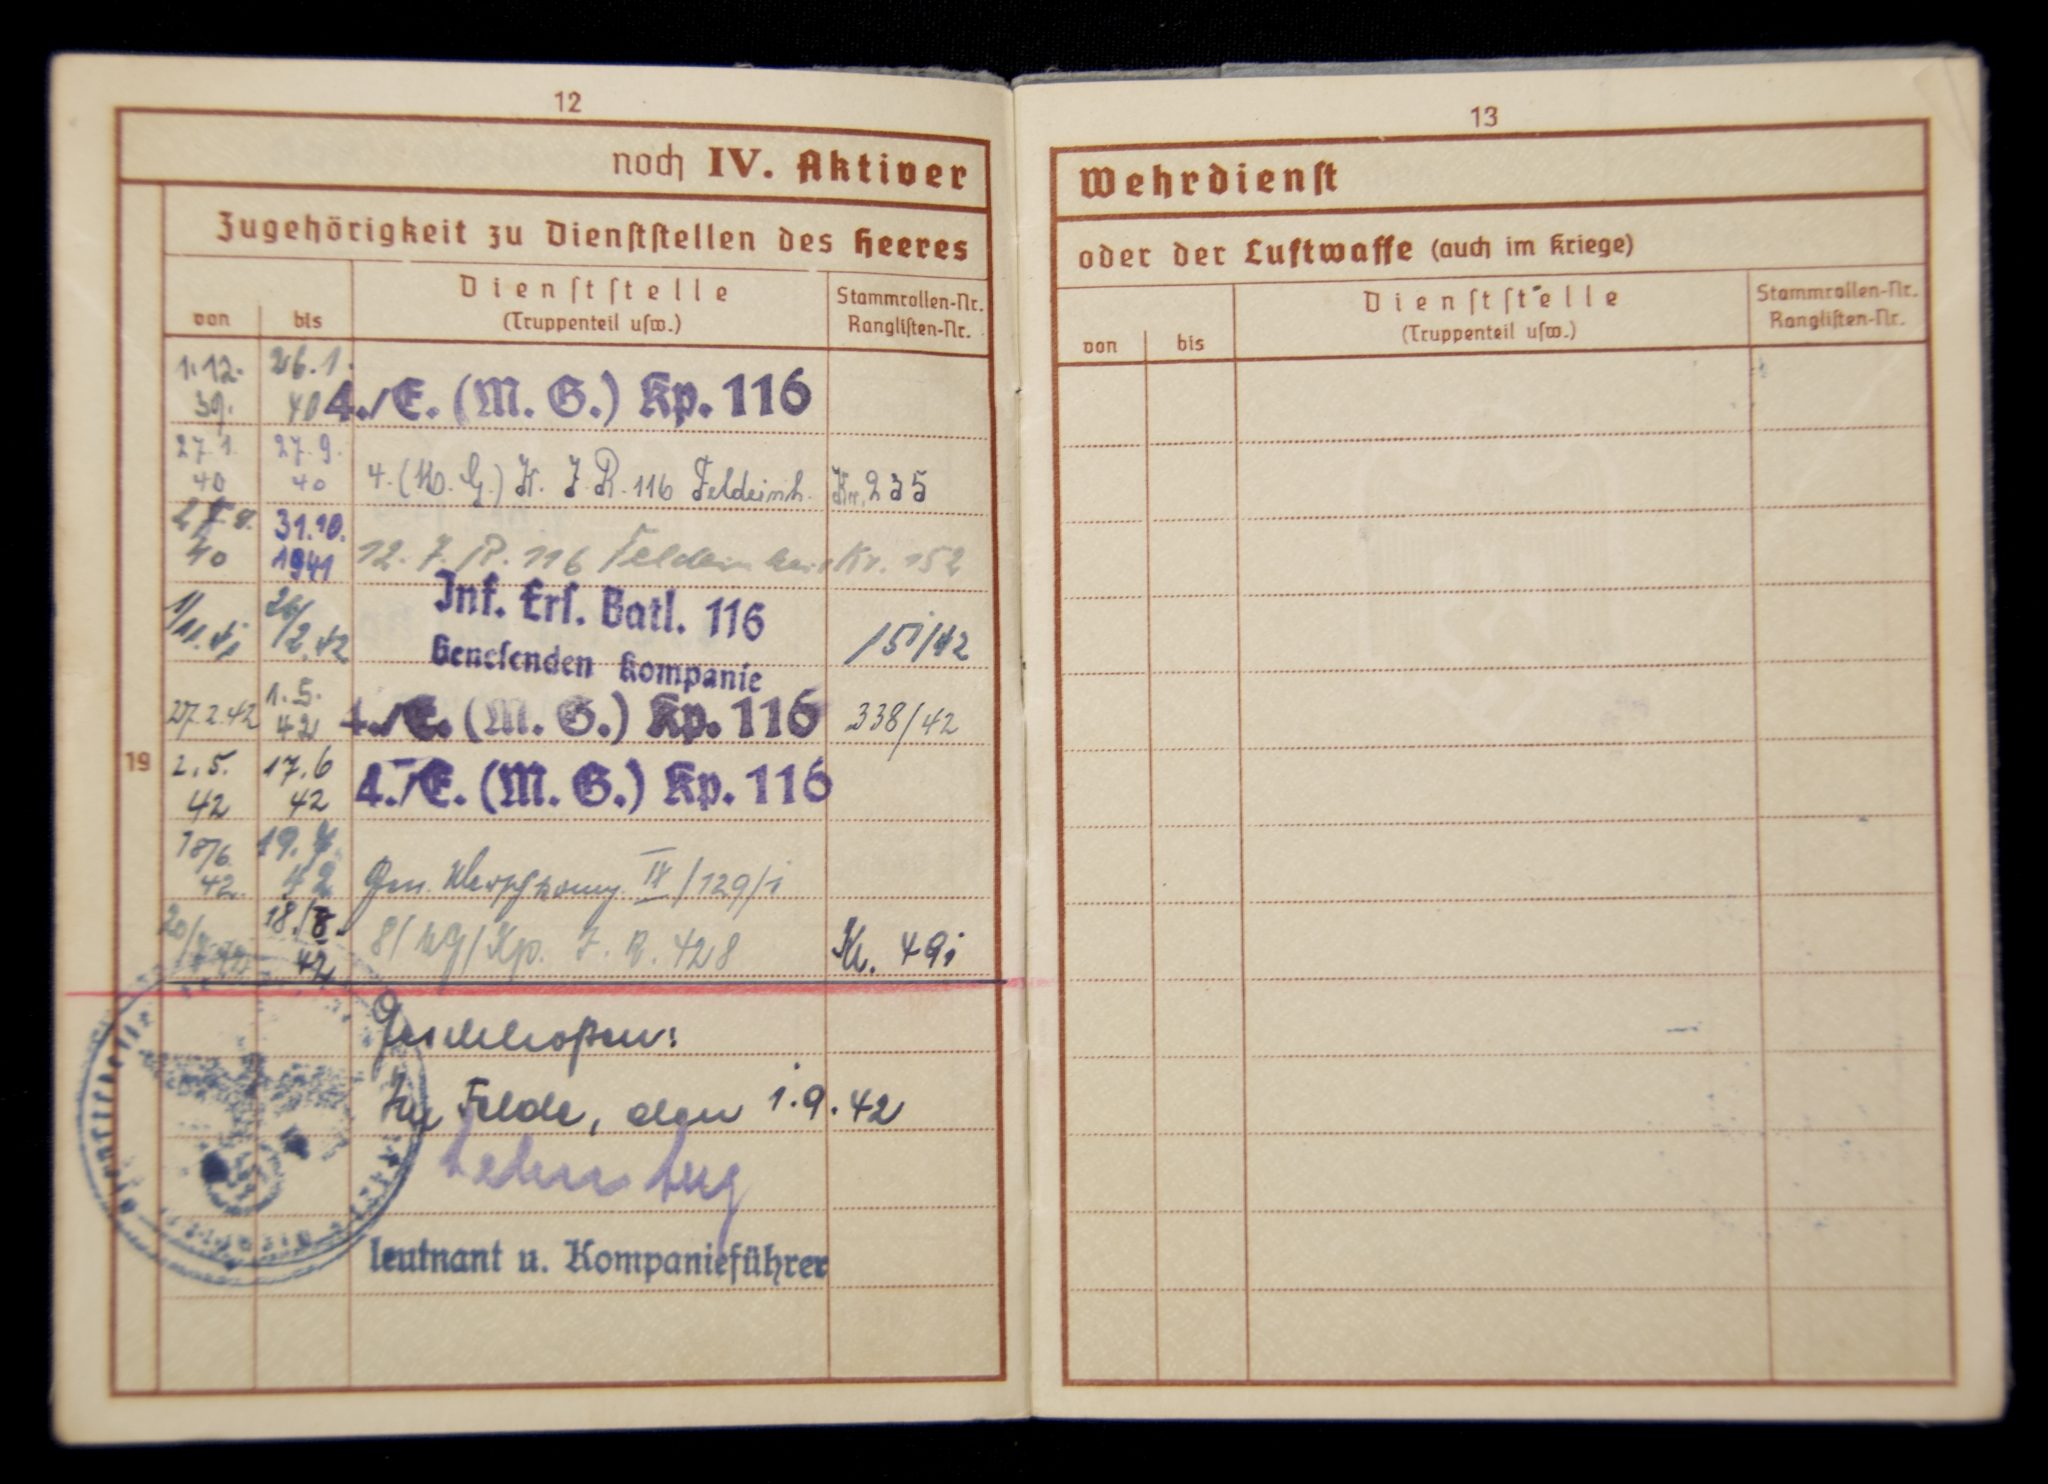 12
noch IV. Aktiver
Zugehörigkeit zu Dienststellen des Heeres
von
bis
Dienststelle
(Truppenteil usw.)
Stammrollen-Nr.
Ranglisten-Nr.
1.12.
39.
26.1.
40
4./E. (M. G.) Kp. 116
27.1.
40
27.9.
40
4. (M. G.) K. I. R. 116 Feldeinh.
Nr. 235
40
31.10.
1941
12. I. R. 116
Nr. 152
1/11.41
26/2.42
Inf. Ers. Batl. 116
Genesenden Kompanie
151/42
27.2.42
1.5.
42
4./E. (M. G.) Kp. 116
338/42
19
2.5.
42
17.6
42
4./E. (M. G.) Kp. 116
18/6.
42.
19.7.
42
IV/129/1
20/7.42
18./8.
42
8/MG/Kp. I. R. 428
Nr. 491
Geschlossen:
Im Felde, den 1.9.42
Leutnant u. Kompanieführer
13
Wehrdienst
oder der Luftwaffe (auch im Kriege)
von
bis
Dienststelle
(Truppenteil usw.)
Stammrollen-Nr.
Ranglisten-Nr.